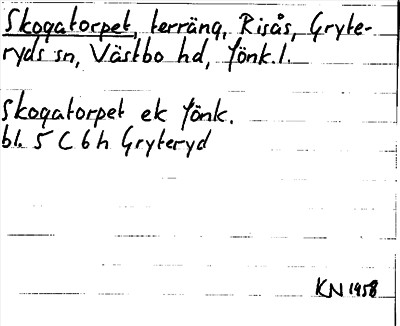 Skogatorpet, terräng, Risås, Gryte-
ryds sn, Västbo hd, Jönk.l.
Skogatorpet ek Jönk.
bl. 5 C 6 h Gryteryd
KN 1958